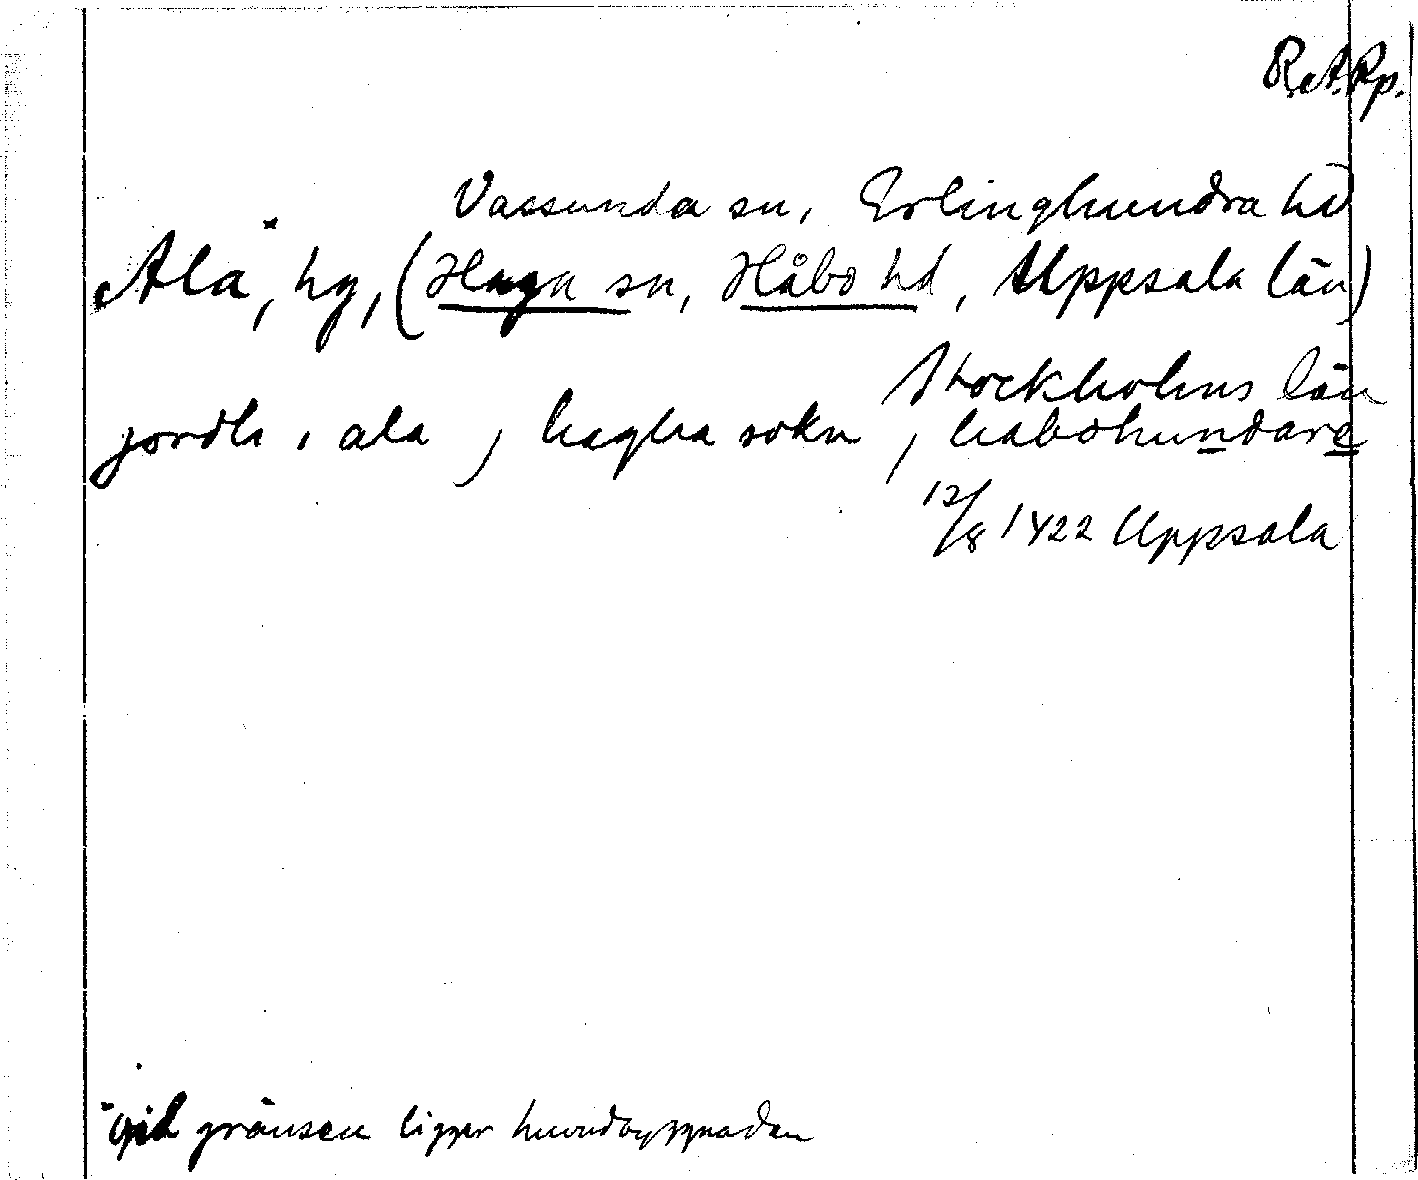 R.A. Rp.
Vassunda sn, Erlinghundra hd
Ala*, hg, (Haga sn, Håbo hd, Uppsala län)
Stockholms län
jordh i ala, hagha sokn, habohundare
12/8 1422 Uppsala
*vid gränsen ligger huvudbyggnaden